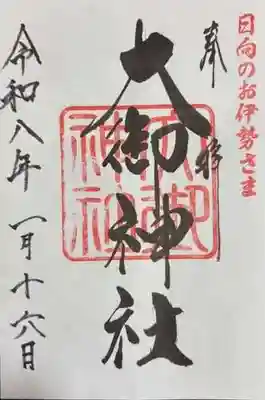 日向のお伊勢さま
奉拝
大御神社
大御神社
令和八年一月十六日